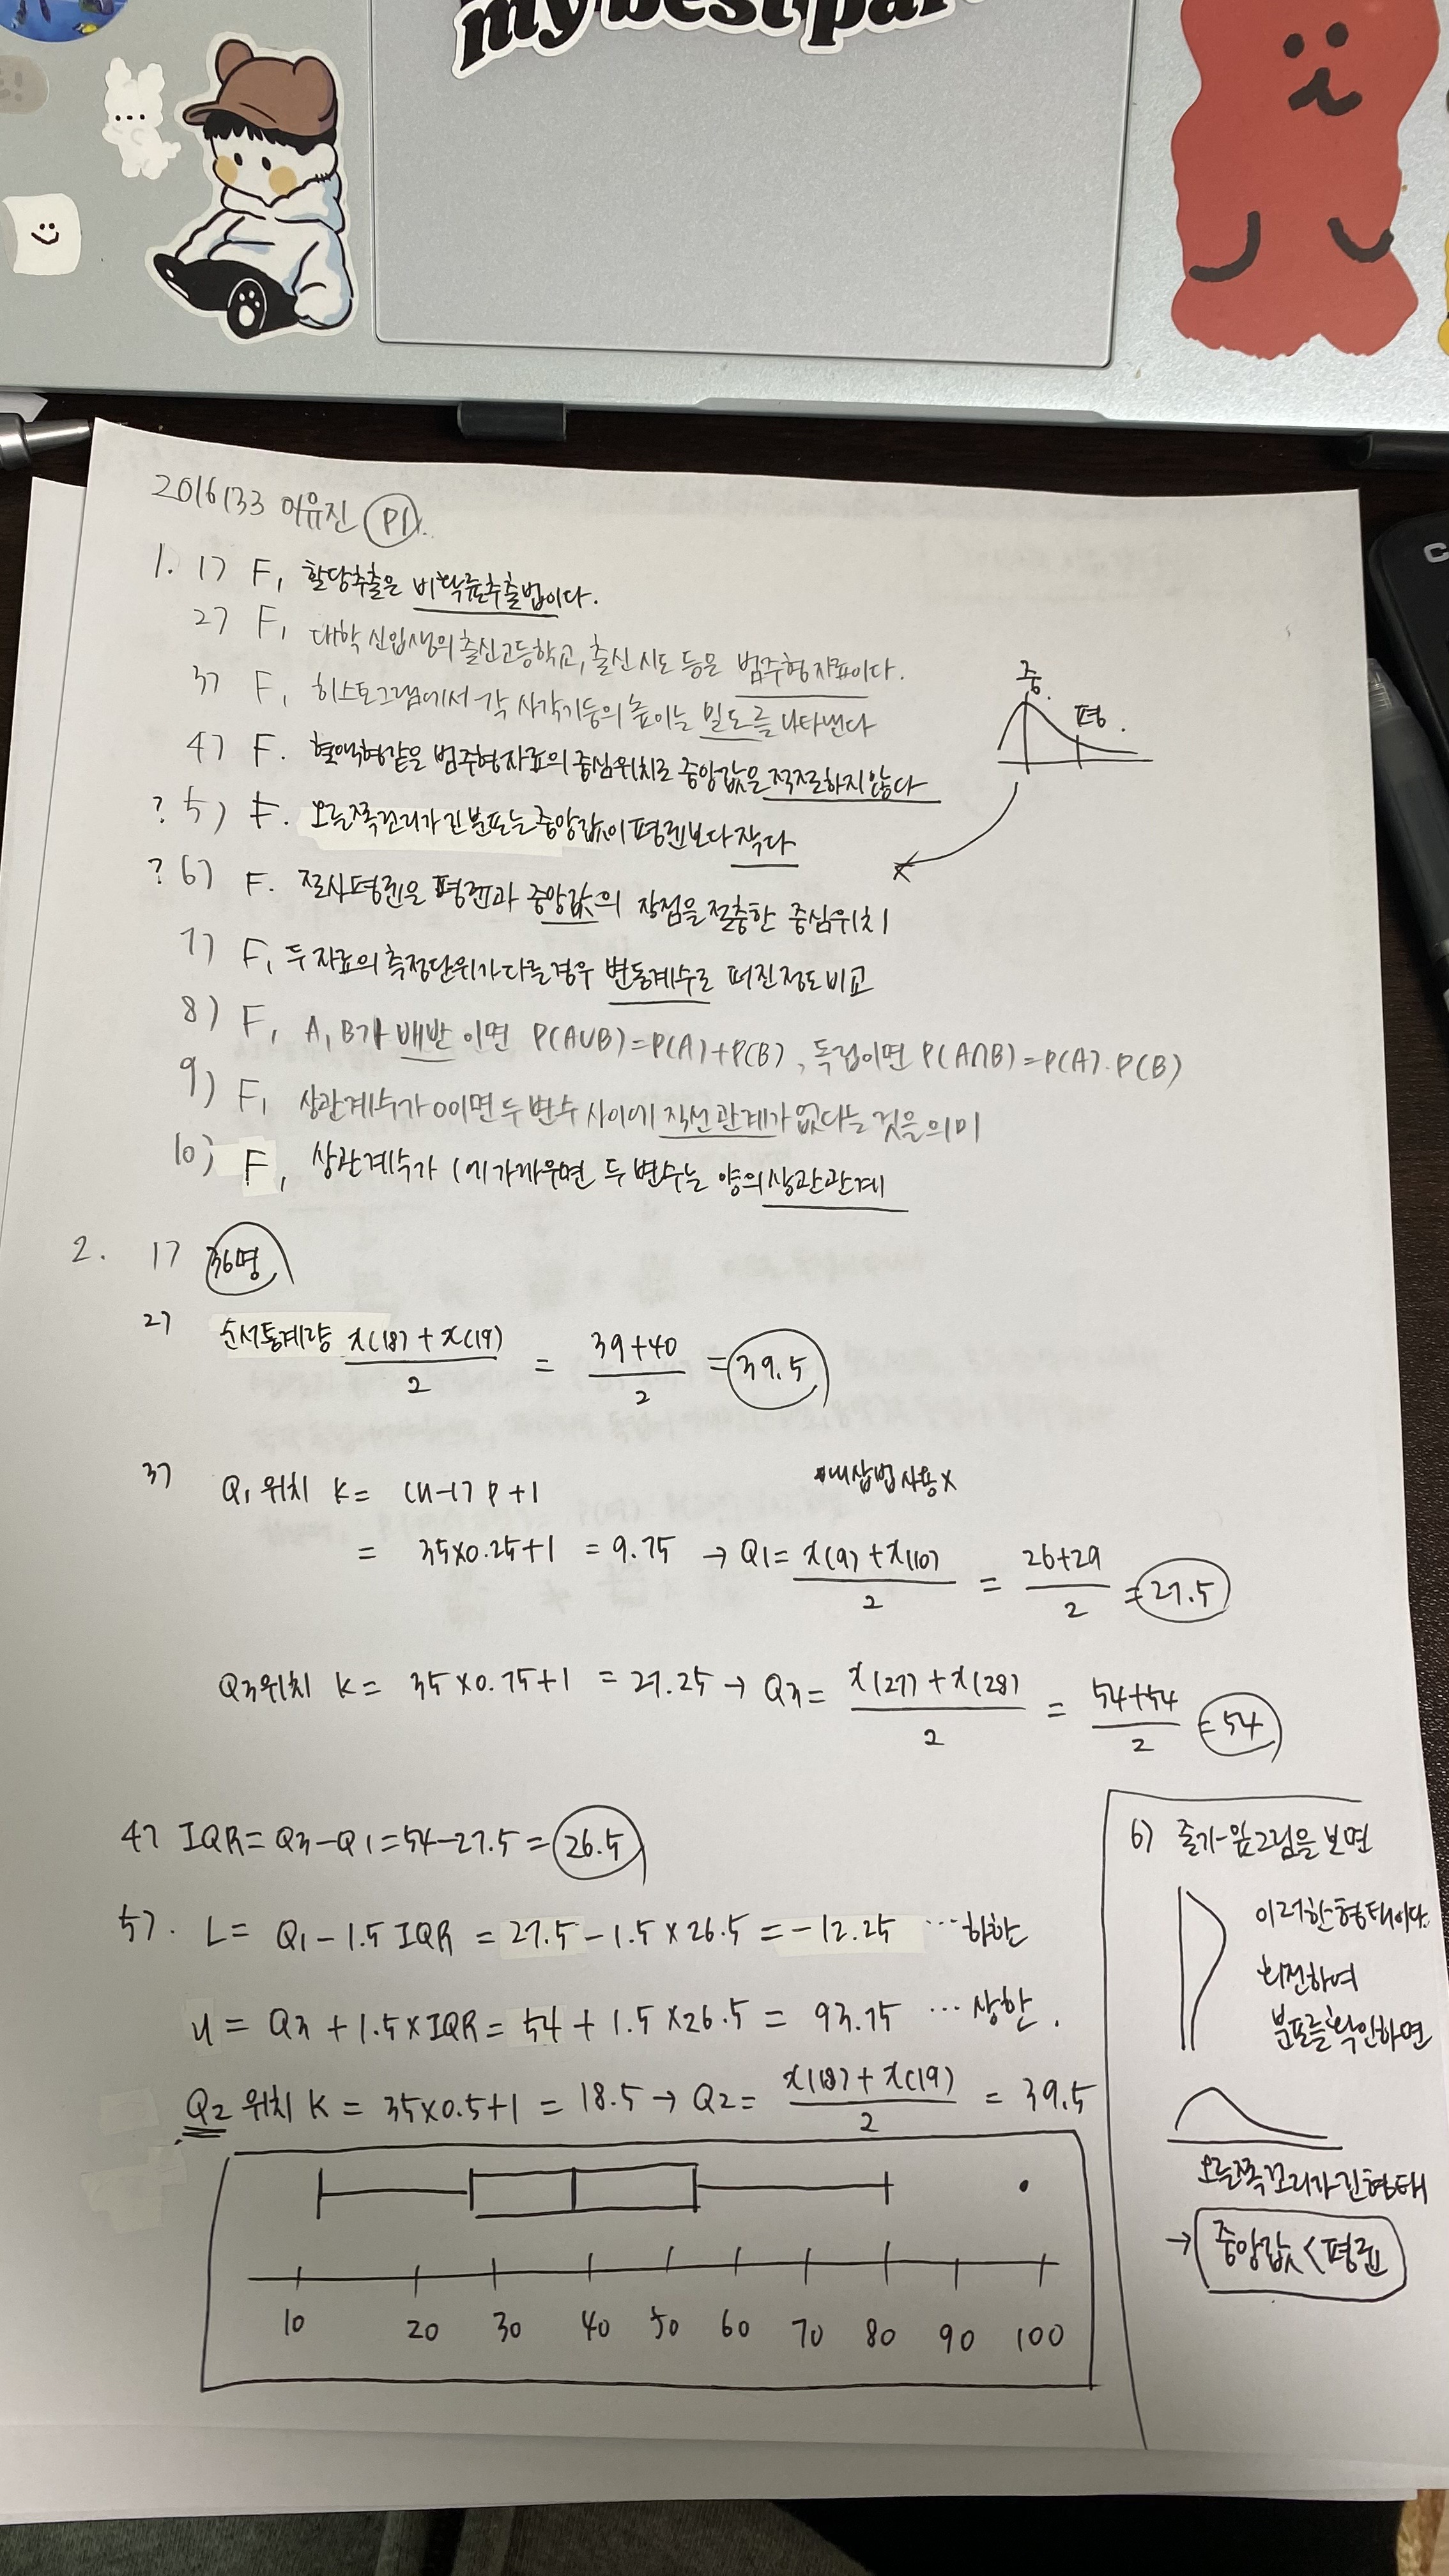 my best par
2016133 이유진 P1.
1. 1) F, 할당추출은 비확률추출법이다.
2) F, 대학 신입생의 출신고등학교, 출신 시도 등은 범주형자료이다.
3) F, 히스토그램에서 각 사각기둥의 높이는 밀도를 나타낸다
중.
평.
4) F. 혈액형같은 범주형자료의 중심위치로 중앙값은 적절하지 않다
? 5) F. 오른쪽꼬리가 긴 분포는 중앙값이 평균보다 작다
? 6) F. 절사평균은 평균과 중앙값의 장점을 절충한 중심위치
7) F, 두 자료의 측정단위가 다를경우 변동계수로 퍼진정도 비교
8) F, A, B가 배반 이면 P(A∪B)=P(A)+P(B), 독립이면 P(A∩B)=P(A)·P(B)
9) F, 상관계수가 0이면 두 변수 사이에 직선관계가 없다는 것을 의미
10) F, 상관계수가 1에 가까우면 두 변수는 양의 상관관계
2. 1) 36명
2) 순서통계량 x(18) + x(19) / 2 = 39+40 / 2 = 39.5
3) Q1 위치 K = (n-1) P + 1 보삽법사용x
= 35x0.25+1 = 9.75 → Q1 = x(9) + x(10) / 2 = 26+29 / 2 = 27.5
Q3위치 K = 35 x 0.75+1 = 27.25 → Q3 = x(27) + x(28) / 2 = 54+54 / 2 = 54
4) IQR = Q3-Q1 = 54-27.5 = 26.5
5). L = Q1 - 1.5 IQR = 27.5 - 1.5 x 26.5 = -12.25 ... 하한
U = Q3 + 1.5 x IQR = 54 + 1.5 x 26.5 = 93.75 ... 상한.
Q2 위치 K = 35x0.5+1 = 18.5 → Q2 = x(18) + x(19) / 2 = 39.5
10 20 30 40 50 60 70 80 90 100
6) 줄기-잎그림을 보면
이러한 형태이다.
회전하여
분포를 확인하면
오른쪽꼬리가 긴 형태
→ 중앙값 < 평균